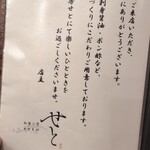 ご来店いただき、
にありがとうございます。
刺身醤油・ポン酢など、
づくりにこだわりご用意しております。
せとにて楽しいひとときを
お過ごしくださいませ。
店主
せと